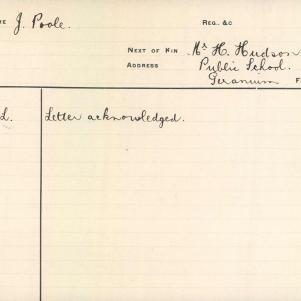 ME J. Poole. REG. &C
NEXT OF KIN Mr H. Hudson
ADDRESS Public School.
Geranium F
L. Letter acknowledged.